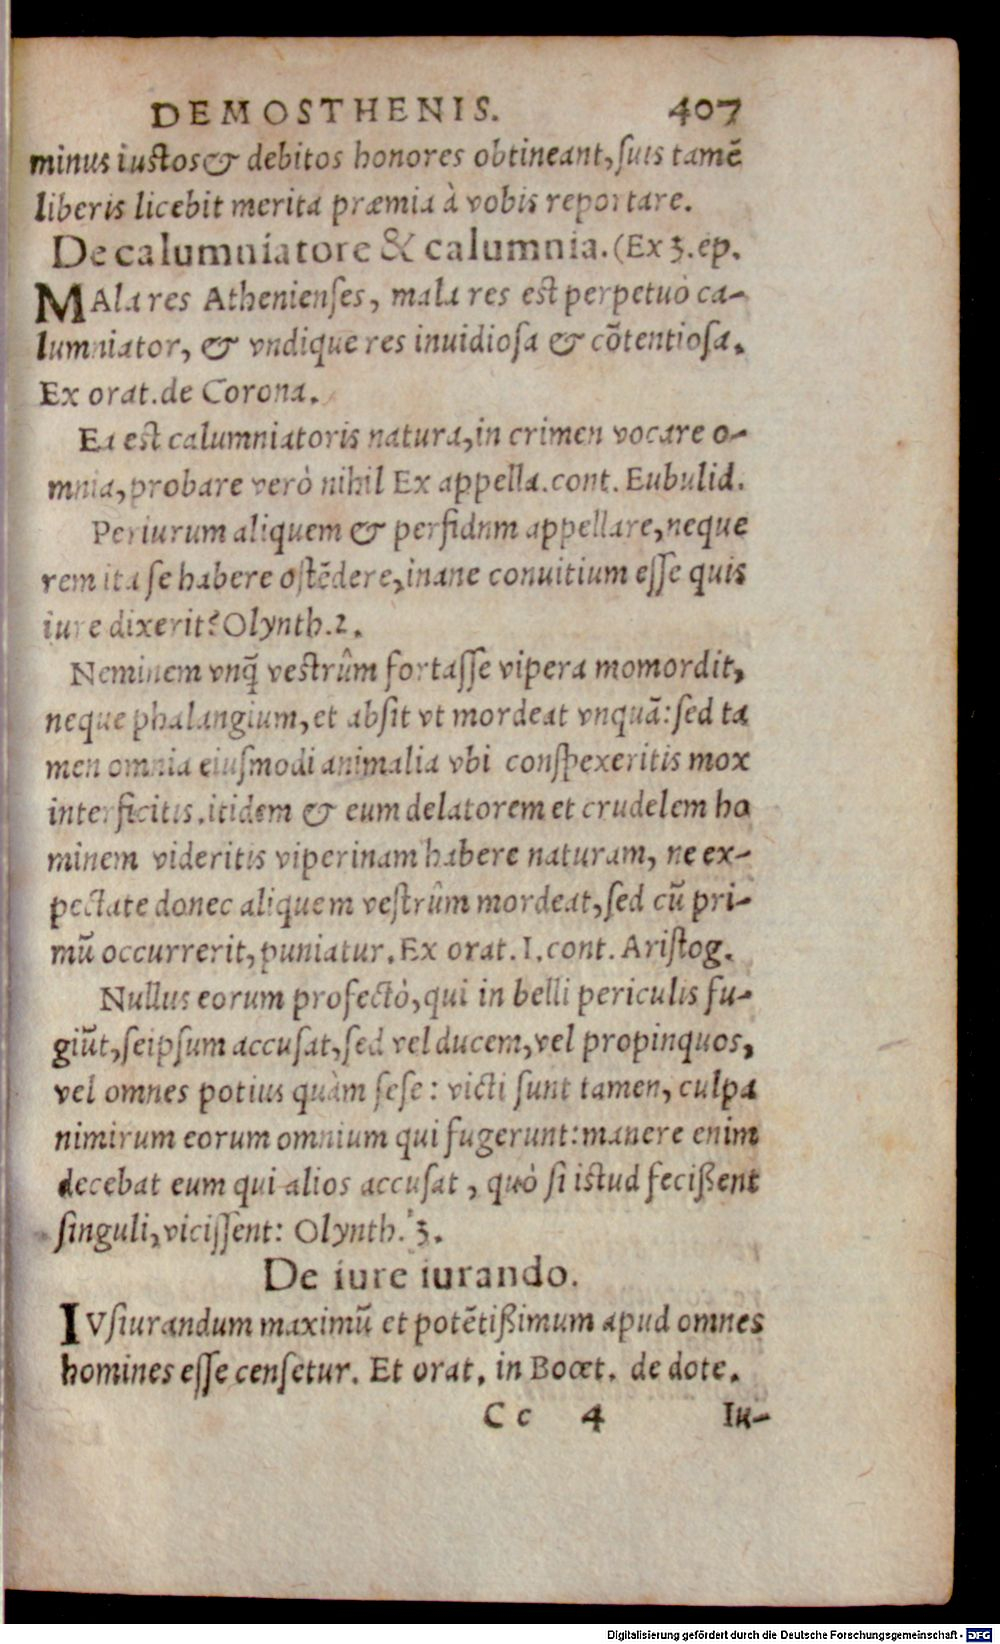 DEMOSTHENIS. 407
minus iustos & debitos honores obtineant, suis tamē
liberis licebit merita præmia à vobis reportare.
De calumniatore & calumnia. (Ex 3. ep.
MAla res Athenienses, mala res est perpetuò ca-
lumniator, & vndique res inuidiosa & cōtentiosa.
Ex orat. de Corona.
Ea est calumniatoris natura, in crimen vocare o-
mnia, probare verò nihil Ex appella. cont. Eubulid.
Periurum aliquem & perfidnm appellare, neque
rem ita se habere ostēdere, inane conuitium esse quis
iure dixerit? Olynth. 2.
Neminem vnq̃ vestrûm fortasse vipera momordit,
neque phalangium, et absit vt mordeat vnquā: sed ta
men omnia eiusmodi animalia vbi conspexeritis mox
interficitis. itidem & eum delatorem et crudelem ho
minem videritis viperinam habere naturam, ne ex-
pectate donec aliquem vestrûm mordeat, sed cū pri-
mū occurrerit, puniatur. Ex orat. I. cont. Aristog.
Nullus eorum profectò, qui in belli periculis fu-
giūt, seipsum accusat, sed vel ducem, vel propinquos,
vel omnes potius quàm sese: victi sunt tamen, culpa
nimirum eorum omnium qui fugerunt: manere enim
decebat eum qui alios accusat, quò si istud fecißent
singuli, vicissent: Olynth. 3.
De iure iurando.
IVsiurandum maximū et potētißimum apud omnes
homines esse censetur. Et orat. in Bœt. de dote.
Cc 4 Iu-
Digitalisierung gefördert durch die Deutsche Forschungsgemeinschaft - DFG